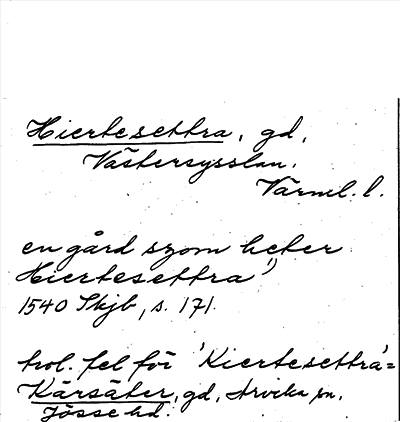 Hiertesettra, gd,
Västersysslan.
Värml. l.
en gård szom heter
Hiertesettra'
1540 Skjb, s. 171.
trol. fel för 'Kiertesettra'=
Kärsäter, gd, Arvika sn,
Jösse hd.